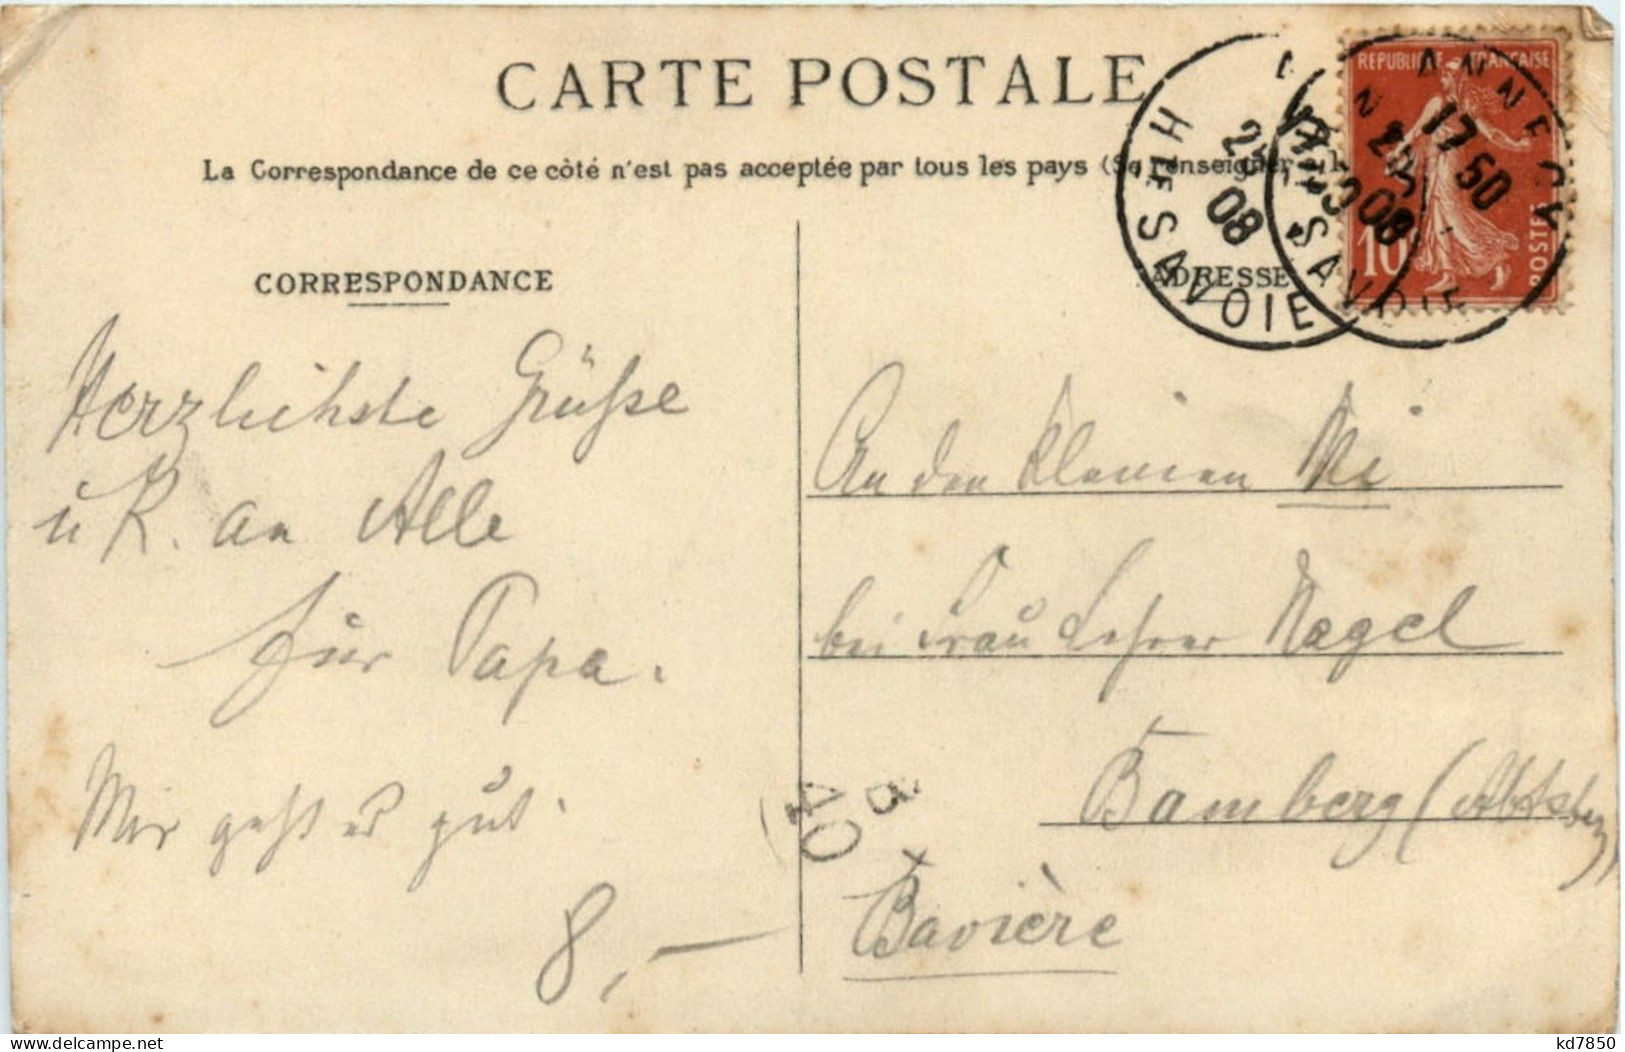 CARTE POSTALE
La Correspondance de ce côté n'est pas acceptée par tous les pays (Se renseigner
REPUBLIQUE FRANÇAISE
10
POSTES
ANNECY
17 50
08
HTE SAVOIE
08
HTE SAVOIE
CORRESPONDANCE
ADRESSE
Herzlichste Grüße
u K. an Alle
für Papa.
Mir geht es gut.
8,—
An den kleinen Mi
bei Frau Lehrer Nagel
Bamberg (Abtsberg)
Bavière
delcampe.net
kd7850